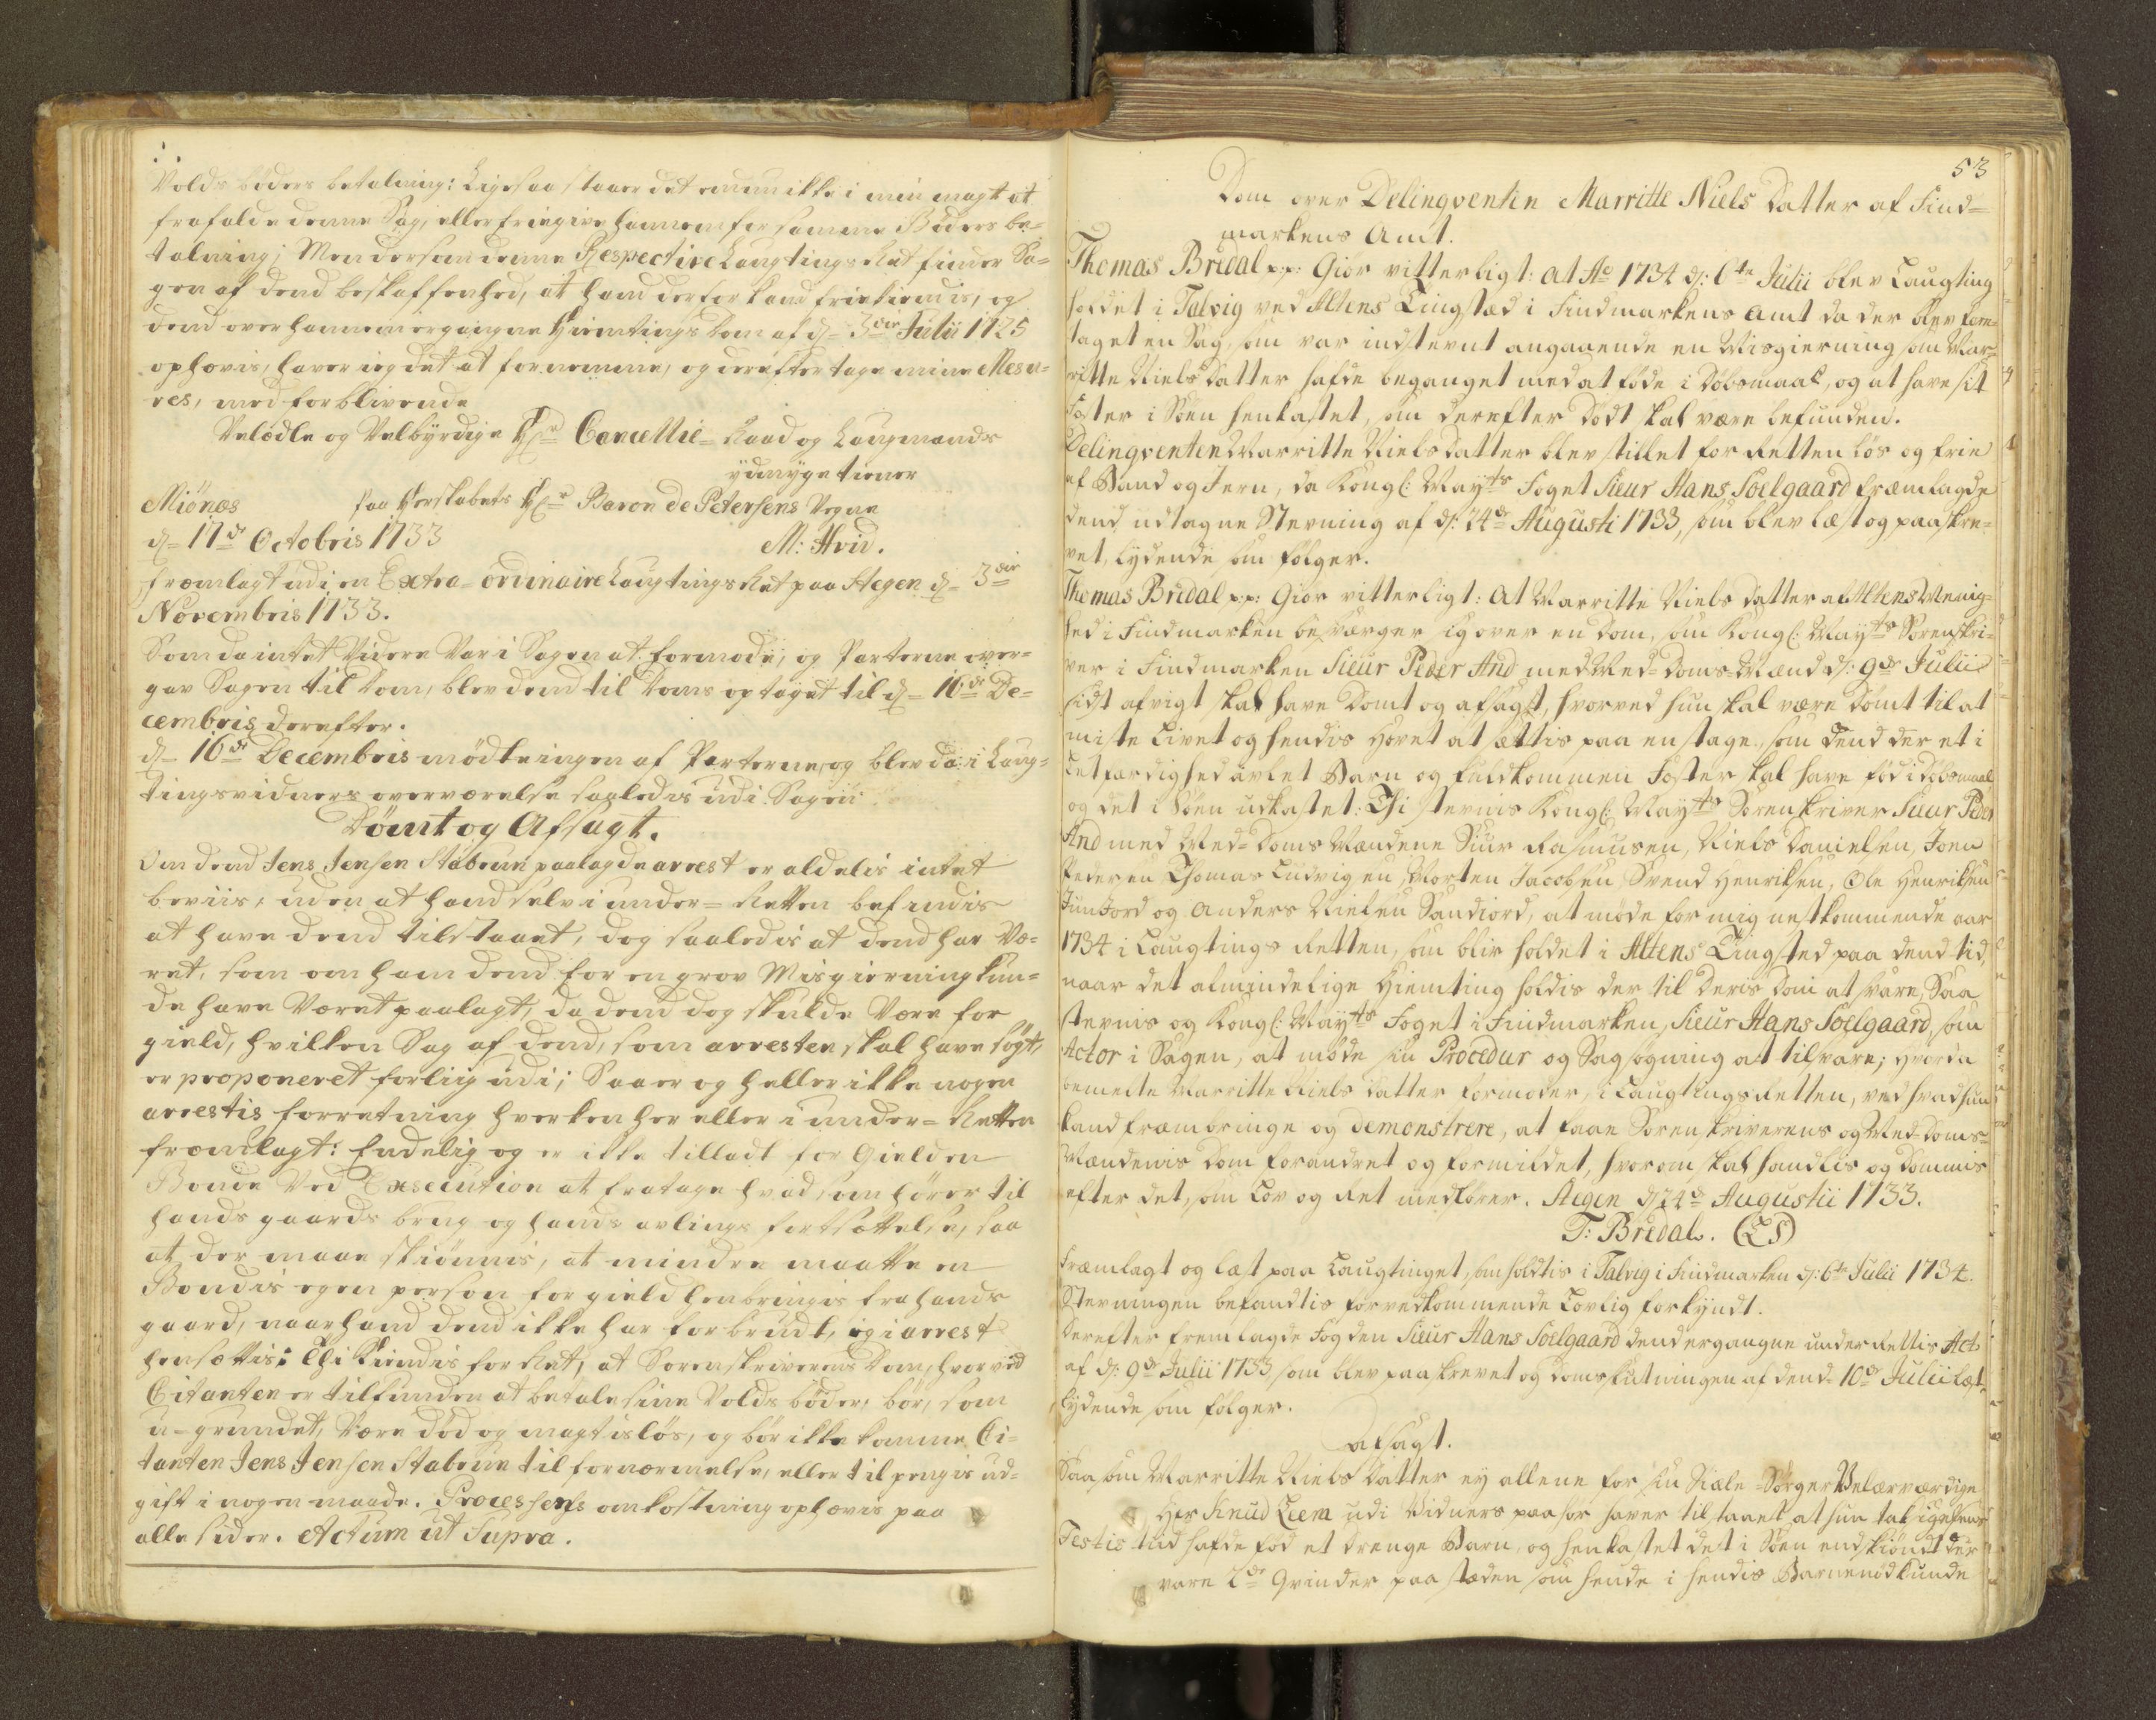 Volds böders betalning: Ligesaa staaer det ennu ikke i min magt at
frafalde denne Sag, eller friegive hannem for samme Böders be=
talning; Men dersom denne Respective Laugtings Ret finder Sa=
gen af dend beskaffenhed, at hand derfor kand friekiendis, og
dend over hannem ergangne Hiemtings Dom af d= 3die Julii 1725
ophævis, haver ieg det at fornemme, og derefter tage mine Mesu=
res, med forblivende
Velædle og Velbÿrdige Hr Cancellie= Raad og Laugmands
ÿdmyge tiener
Miönæs paa Herskabets Hr Baron de Petersens Vegne
d= 17de Octobris 1733 M: Hvid.
fremlagt udi en Extra= ordinaire Laugtings Ret paa Stegen d= 3die
Novembris 1733.
Som da intet Videre Var i Sagen at formode, og Parterne over=
gav Sagen til Dom, blev dend til Doms optaget til d= 16de De=
cembris derefter.
d= 16de Decembris mödte ingen af Parterne, og blev da i Laug=
tingsvidners overværelse saaledis udi Sagen
Dömt og Afsagt.
Om dend Jens Jensen Stabrun paalagde arrest er aldelis intet
beviis, uden at hand selv i under= Retten befindis
at have dend tilstaaet, dog saaledis at dend har Væ=
ret, som om ham dend for en grov Misgierning kun=
de have Været paalagt, da dend dog skulde Være for
gield, hvilken Sag af dend, som arresten skal have sögt,
er proponeret forliig udi; Saa er og heller ikke nogen
arrestis forretning hverken her eller i under= Retten
fremlagt: Endelig og er ikke tilladt for Gield en
Bonde Ved Execution at fratage hvad som hörer til
hands gaards brug og hands avlings fortsættelse, saa
at der maae skiönnis, at mindre maatte en
Bondis egen person for gield henbringis fra hands
gaard, naar hand dend ikke har forbrudt, og i arrest
hensættis: Thi Kiendis for Ret, at Sorenskriverens Dom, hvorved
Citanten er tilfunden at betale sine Volds böder, bör, som
u=grundet, Være död og magtislös, og bör ikke komme Ci=
tanten Jens Jensen Stabrun til fornærmelse, eller til pengis ud=
gift i nogen maade. Processens omkostning ophævis paa
alle sider. Actum ut Supra.
53
Dom over Delinqventin Marritte Niels Datter af Find=
markens Amt.
Thomas Bredal p.p: Giör vitterligt: At Ao 1734 d: 6te Julii blev Laugting
holdet i Talvig ved Altens Tingsted i Findmarkens Amt da der blev fore=
taget en Sag, som var indstevnt angaaende en Misgierning som Mar=
ritte Niels Datter hafde beganget med at föde i Dölsmaal, og at have sit
Foster i Söen henkastet, som derefter Dödt skal være befunden.
Delinqventen Marritte Niels datter blev stillet for Retten lös og frie
af Baand og Jern, da Kongl: Mayts Foget Sieur Hans Soelgaard fræmlagde
dend udtagne Stevning af d: 24de Augusti 1733, som blev læst og paaskre=
vet, lydende som fölger.
Thomas Bredal p.p: Giör vitterligt: At Marritte Niels datter af Altens Menig=
hed i Findmarken besværger sig over en Dom, som Kongl: Mayts Sorenskri=
ver i Findmarken Sieur Peder And med Med=Doms=Mænd d: 9de Julii
sidst afvigt skal have Dömt og afsagt, hvorved hun skal være Dömt til at
miste Livet og hendis Hovet at sættis paa en stage, som dend der et i
Letfærdighed avlet Barn og fuldkommen Foster skal have föd i dölsmaal
og det i Söen udkastet: Thi stevnis Kongl: Mayts Sorenskriver Sieur Peder
And med Med=Doms Mændene Siur Rasmusen, Niels Danielsen, Joen
Pedersen Thomas Ludvigsen, Morten Jacobsen, Svend Henriksen, Ole Henriksen
og Anders Nielsen Sandiord, at möde for mig nestkommende aar
1734 i Laugtings Retten, som blir holdet i Altens Tingsted paa dend tid,
naar det almindelige Hiemting holdis der til Deris Dom at svare, Saa
stevnis og Kongl: Mayts Foget i Findmarken, Sieur Hans Soelgaard, som
Actor i Sagen, at möde sin Procedur og Sagsögning at tilsvare; Hvorda
bemelte Marritte Niels datter formoder, i Laugtings Retten, ved hvad hun
kand fræmbringe og demonstrere, at faae Sorenskriverens og Med=Doms=
Mændenis Dom forandret og formildet, hvorom skal handlis og Dömmis
efter det, som Lov og Ret medförer. Stegen d 24de Augustii 1733.
T: Bredal. (LS)
Fræmlagt og læst paa Laugtinget, som holdtis i Talvig i Findmarken d: 6te Julii 1734.
Stevningen befandtis forvedkommende Lovlig forkÿndt.
Derefter fremlagde Fogden Sieur Hans Soelgaard dend ergangne under Rettis Act
af d: 9de Julii 1733 som blev paaskrevet og Domslutningen af dend 10de Julii læst,
lydende som fölger.
Afsagt.
Saasom Marritte Niels Datter ey allene for sin Siæle=Sörger Velærværdige
Her Knud Leem udi Vidners paahör haver tilstaaet, at hun
hafde föd et Drenge Barn, og henkastet det i Söen endskiönt der
vare 2de Qvinder paa stæden som hende i hendis Barnenöd kunde